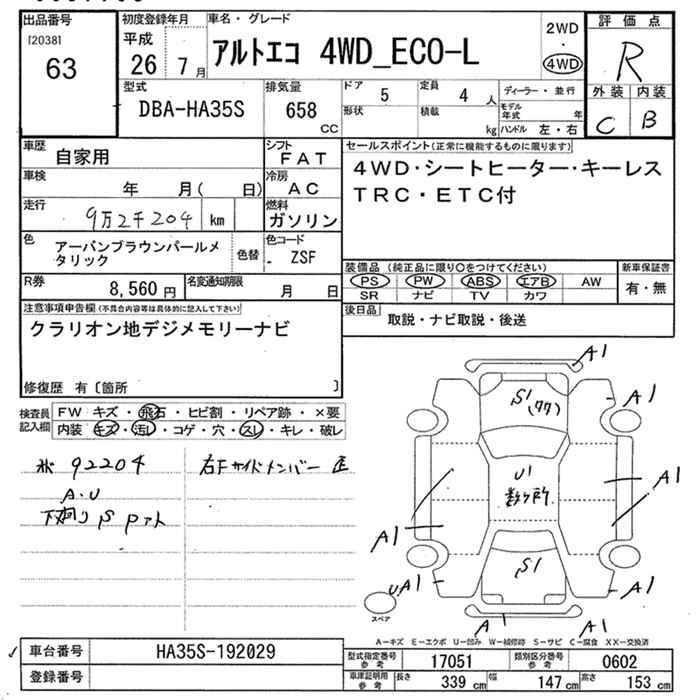 出品番号
120381
63
初度登録年月
平成
26 7 月
車名・グレード
アルトエコ 4WD_ECO-L
2WD
・
4WD
評価点
R
外装 内装
C B
型式
DBA-HA35S
排気量
658
CC
ドア
5
定員
4 人
形状
積載
kg
ディーラー・並行
モデル年式 年
ハンドル 左・右
車歴
自家用
シフト
FAT
車検
年 月( 日)
冷房
AC
走行
9万2千204 km
燃料
ガソリン
色
アーバンブラウンパールメ
タリック
色替
色コード
ZSF
セールスポイント(正常に機能するものに限ります)
4WD・シートヒーター・キーレス
TRC・ETC付
R券
8,560 円
名変通知期限
月 日
装備品(純正品に限り○をつけてください)
PS PW ABS エアB AW
SR ナビ TV カワ
新車保証書
有・無
後日品
取説・ナビ取説・後送
注意事項申告欄(不具合内容等は具体的に記入して下さい)
クラリオン地デジメモリーナビ
修復歴 有〔箇所 〕
検査員
記入欄
FW キズ・飛石・ヒビ割・リペア跡・×要
内装 キズ・汚レ・コゲ・穴・スレ・キレ・破レ
92204
A・U
下廻り S
右Fサイドメンバー
A1
A1
S1
A1
U1
数ヶ所
A1
A1
A1
S1
A1
A1
A1
A1
スペア
A－キズ E－エクボ U－凹み W－補修跡 S－サビ C－腐食 XX－交換済
車台番号
HA35S-192029
登録番号
型式指定番号
参考
17051
類別区分番号
参考
0602
車庫証明用
参考
長さ 339 cm 幅 147 cm 高さ 153 cm